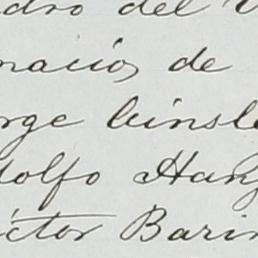 dro del V
macio, de
rge Cinsle
dolfo Hang
íctor Barin